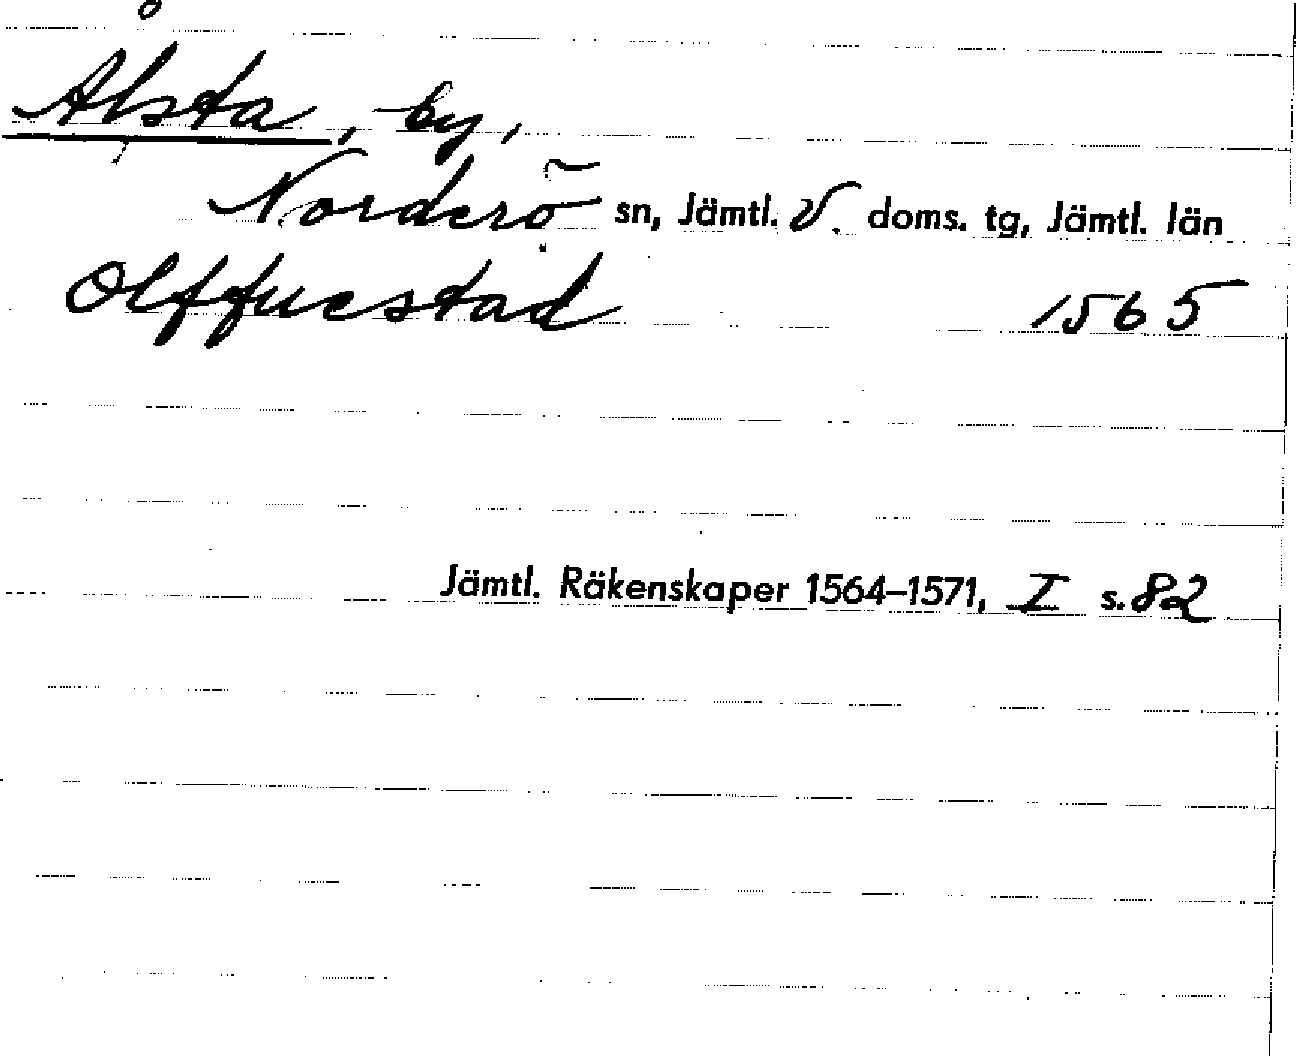 Ålsta, by,
Norderö sn, Jämtl. V. doms. tg, Jämtl. län
Olffuestad 1565
Jämtl. Räkenskaper 1564–1571, I s. 82